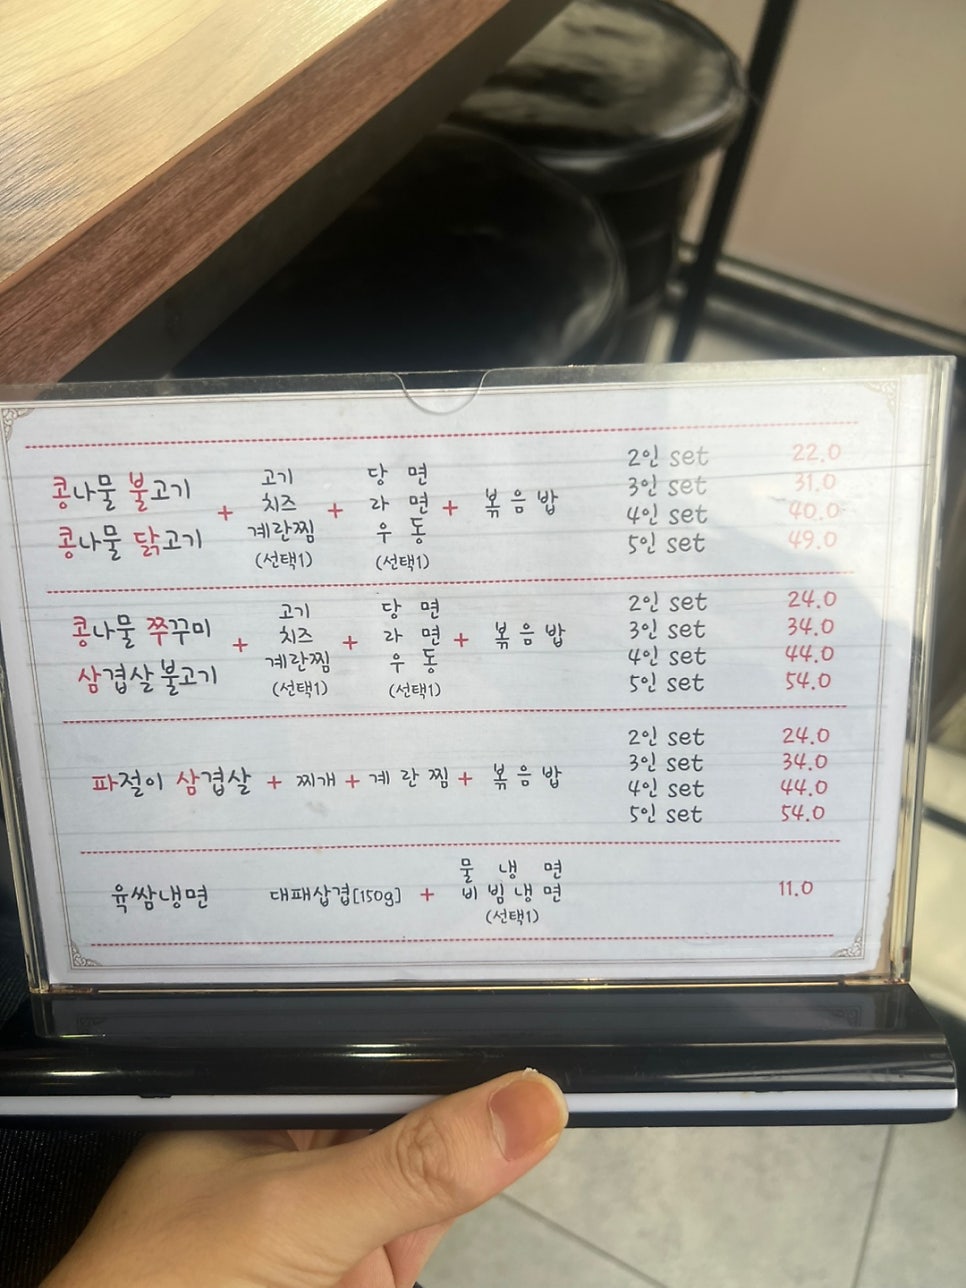 콩나물 불고기
콩나물 닭고기
+
고기
치즈
계란찜
(선택1)
+
당 면
라 면
우 동
(선택1)
+ 볶음밥
2인 set 22.0
3인 set 31.0
4인 set 40.0
5인 set 49.0
콩나물 쭈꾸미
삼겹살 불고기
+
고기
치즈
계란찜
(선택1)
+
당 면
라 면
우 동
(선택1)
+ 볶음밥
2인 set 24.0
3인 set 34.0
4인 set 44.0
5인 set 54.0
파절이 삼겹살 + 찌개 + 계란찜 + 볶음밥
2인 set 24.0
3인 set 34.0
4인 set 44.0
5인 set 54.0
육쌈냉면 대패삽겹[150g] +
물 냉 면
비빔냉면
(선택1)
11.0